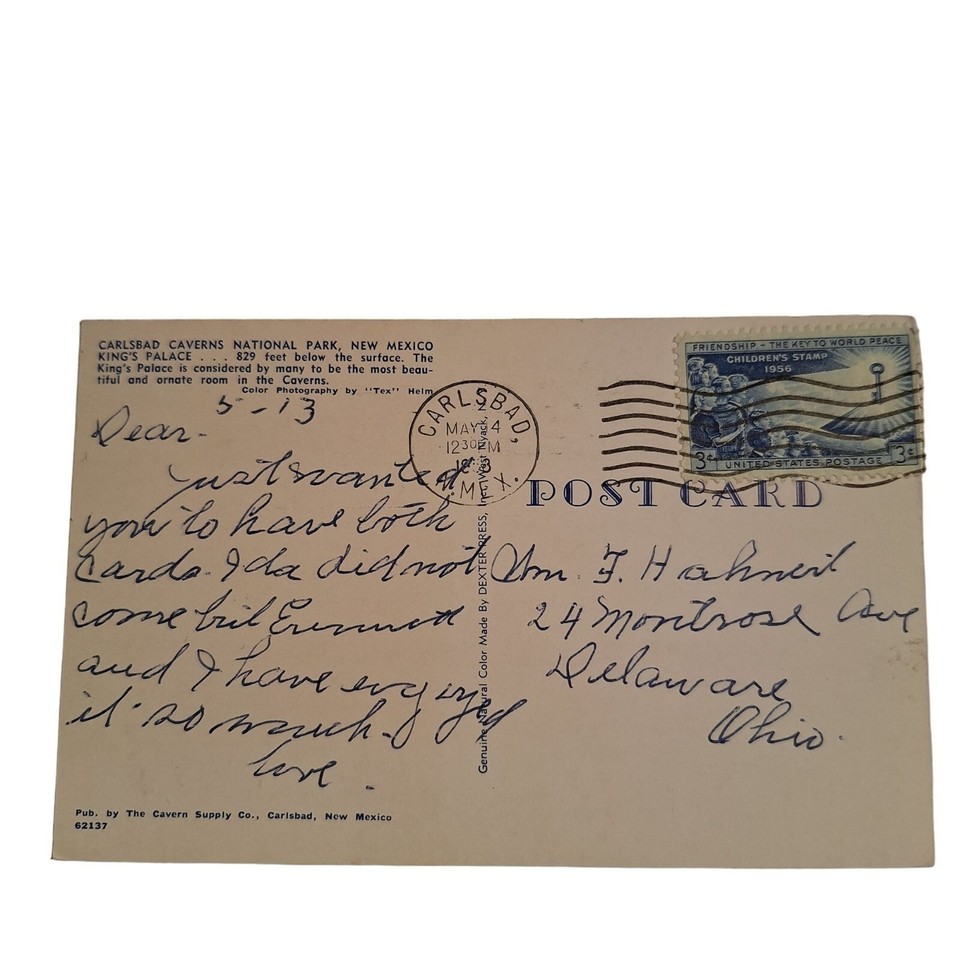 CARLSBAD CAVERNS NATIONAL PARK, NEW MEXICO
KING'S PALACE . . . 829 feet below the surface. The
King's Palace is considered by many to be the most beau-
tiful and ornate room in the Caverns.
Color Photography by "Tex" Helm
5-13
Dear-
just wanted
you to have both
cards. Ida did not
come but
and I have
it so much.
love.
Pub. by The Cavern Supply Co., Carlsbad, New Mexico
62137
Genuine Natural Color Made By DEXTER PRESS, Inc., West Nyack, N.
CARLSBAD,
MAY 4
1230 M
N. MEX.
FRIENDSHIP - THE KEY TO WORLD PEACE
CHILDREN'S STAMP
1956
3¢ 3¢
UNITED STATES POSTAGE
POST CARD
Wm. F.
24 Montrose Ave
Delaware
Ohio.